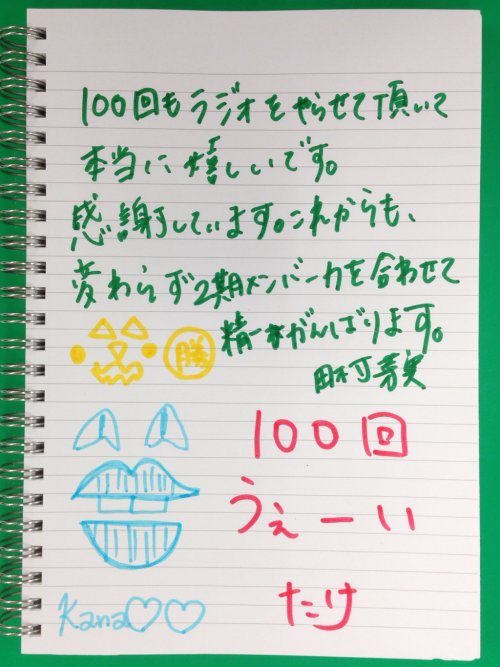 100回もラジオをやらせて頂いて
本当に嬉しいです。
感謝しています。これからも、
変わらず2期メンバー力を合わせて
精一杯がんばります。
勝
田村芽実
100回
うぇーい
たけ
Kana♡♡